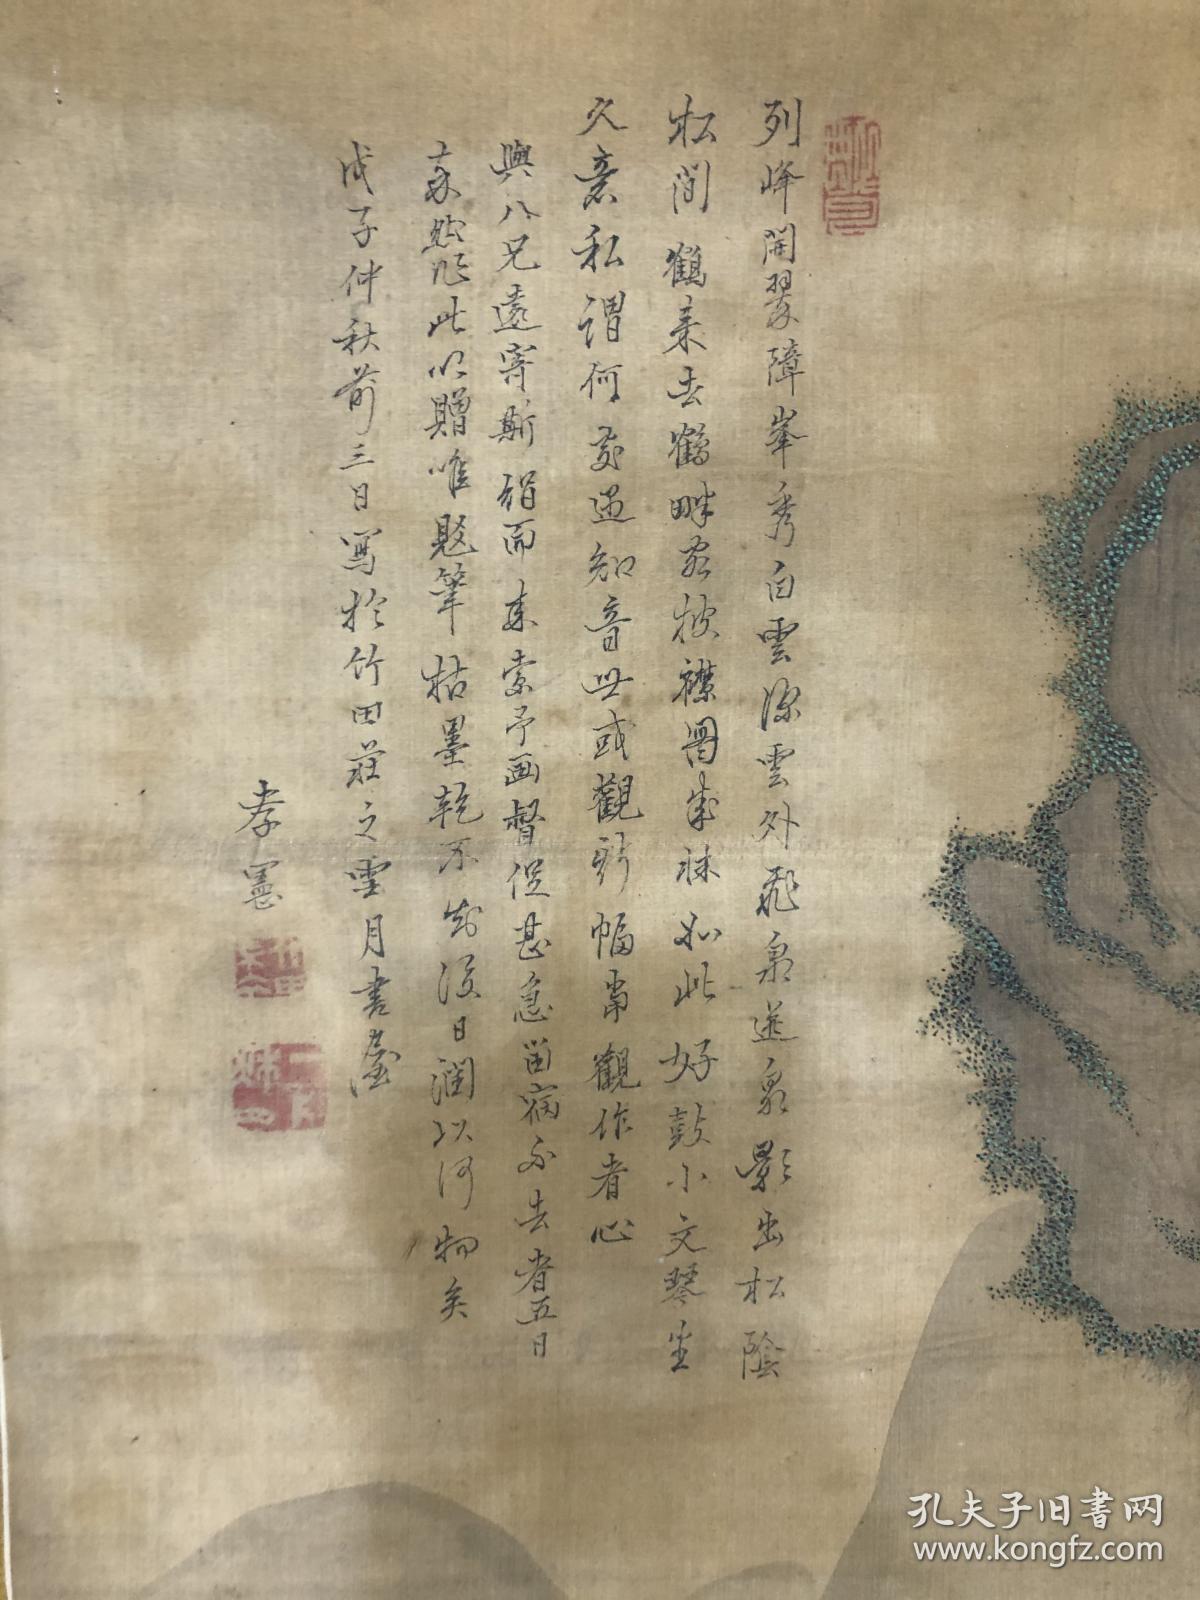 列峰開翠障峯秀白雲深雲外飛泉逆泉影出松陰
松間鶴来去鶴畔君披襟圖成味如此好鼓小文琴坐
久意私謂何處遇知音世或觀斯幅當觀作者心
與八兄遠寄斯絹而来索予画督促甚急苗病不去者五日
森然作此以贈唯題筆枯墨乾不知後日潤以何物矣
戊子仲秋前三日寫於竹田莊之雪月書堂
孝憲
孔夫子旧书网
www.kongfz.com